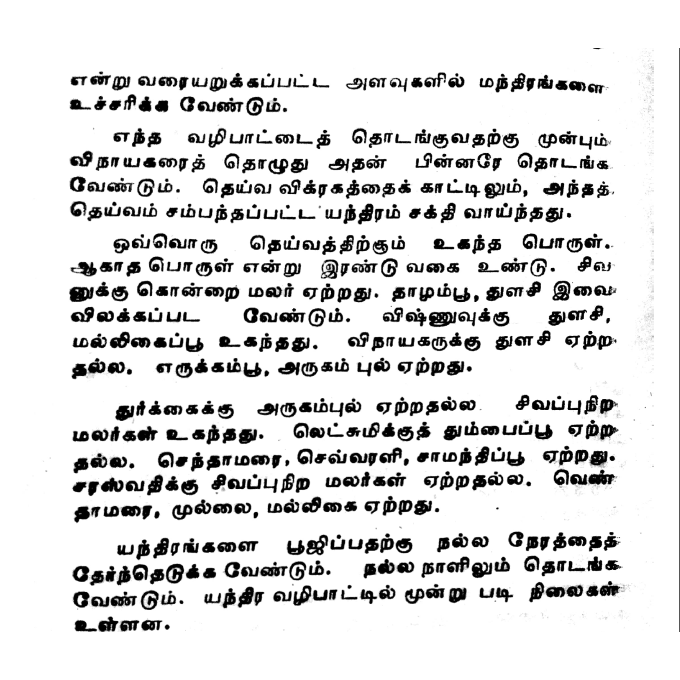 என்று வரையறுக்கப்பட்ட அளவுகளில் மந்திரங்களை
உச்சரிக்க வேண்டும்.
எந்த வழிபாட்டைத் தொடங்குவதற்கு முன்பும்
விநாயகரைத் தொழுது அதன் பின்னரே தொடங்க
வேண்டும். தெய்வ விக்ரகத்தைக் காட்டிலும், அந்தத்
தெய்வம் சம்பந்தப்பட்ட யந்திரம் சக்தி வாய்ந்தது.
ஒவ்வொரு தெய்வத்திற்கும் உகந்த பொருள்.
ஆகாத பொருள் என்று இரண்டு வகை உண்டு. சிவ
னுக்கு கொன்றை மலர் ஏற்றது. தாழம்பூ, துளசி இவை
விலக்கப்பட வேண்டும். விஷ்ணுவுக்கு துளசி,
மல்லிகைப்பூ உகந்தது. விநாயகருக்கு துளசி ஏற்ற
தல்ல. எருக்கம்பூ, அருகம் புல் ஏற்றது.
துர்க்கைக்கு அருகம்புல் ஏற்றதல்ல சிவப்புநிற
மலர்கள் உகந்தது. லெட்சுமிக்குத் தும்பைப்பூ ஏற்ற
தல்ல. செந்தாமரை, செவ்வரளி, சாமந்திப்பூ ஏற்றது.
சரஸ்வதிக்கு சிவப்புநிற மலர்கள் ஏற்றதல்ல. வெண்
தாமரை, முல்லை, மல்லிகை ஏற்றது.
யந்திரங்களை பூஜிப்பதற்கு நல்ல நேரத்தைத்
தேர்ந்தெடுக்க வேண்டும். நல்ல நாளிலும் தொடங்க
வேண்டும். யந்திர வழிபாட்டில் மூன்று படி நிலைகள்
உள்ளன.